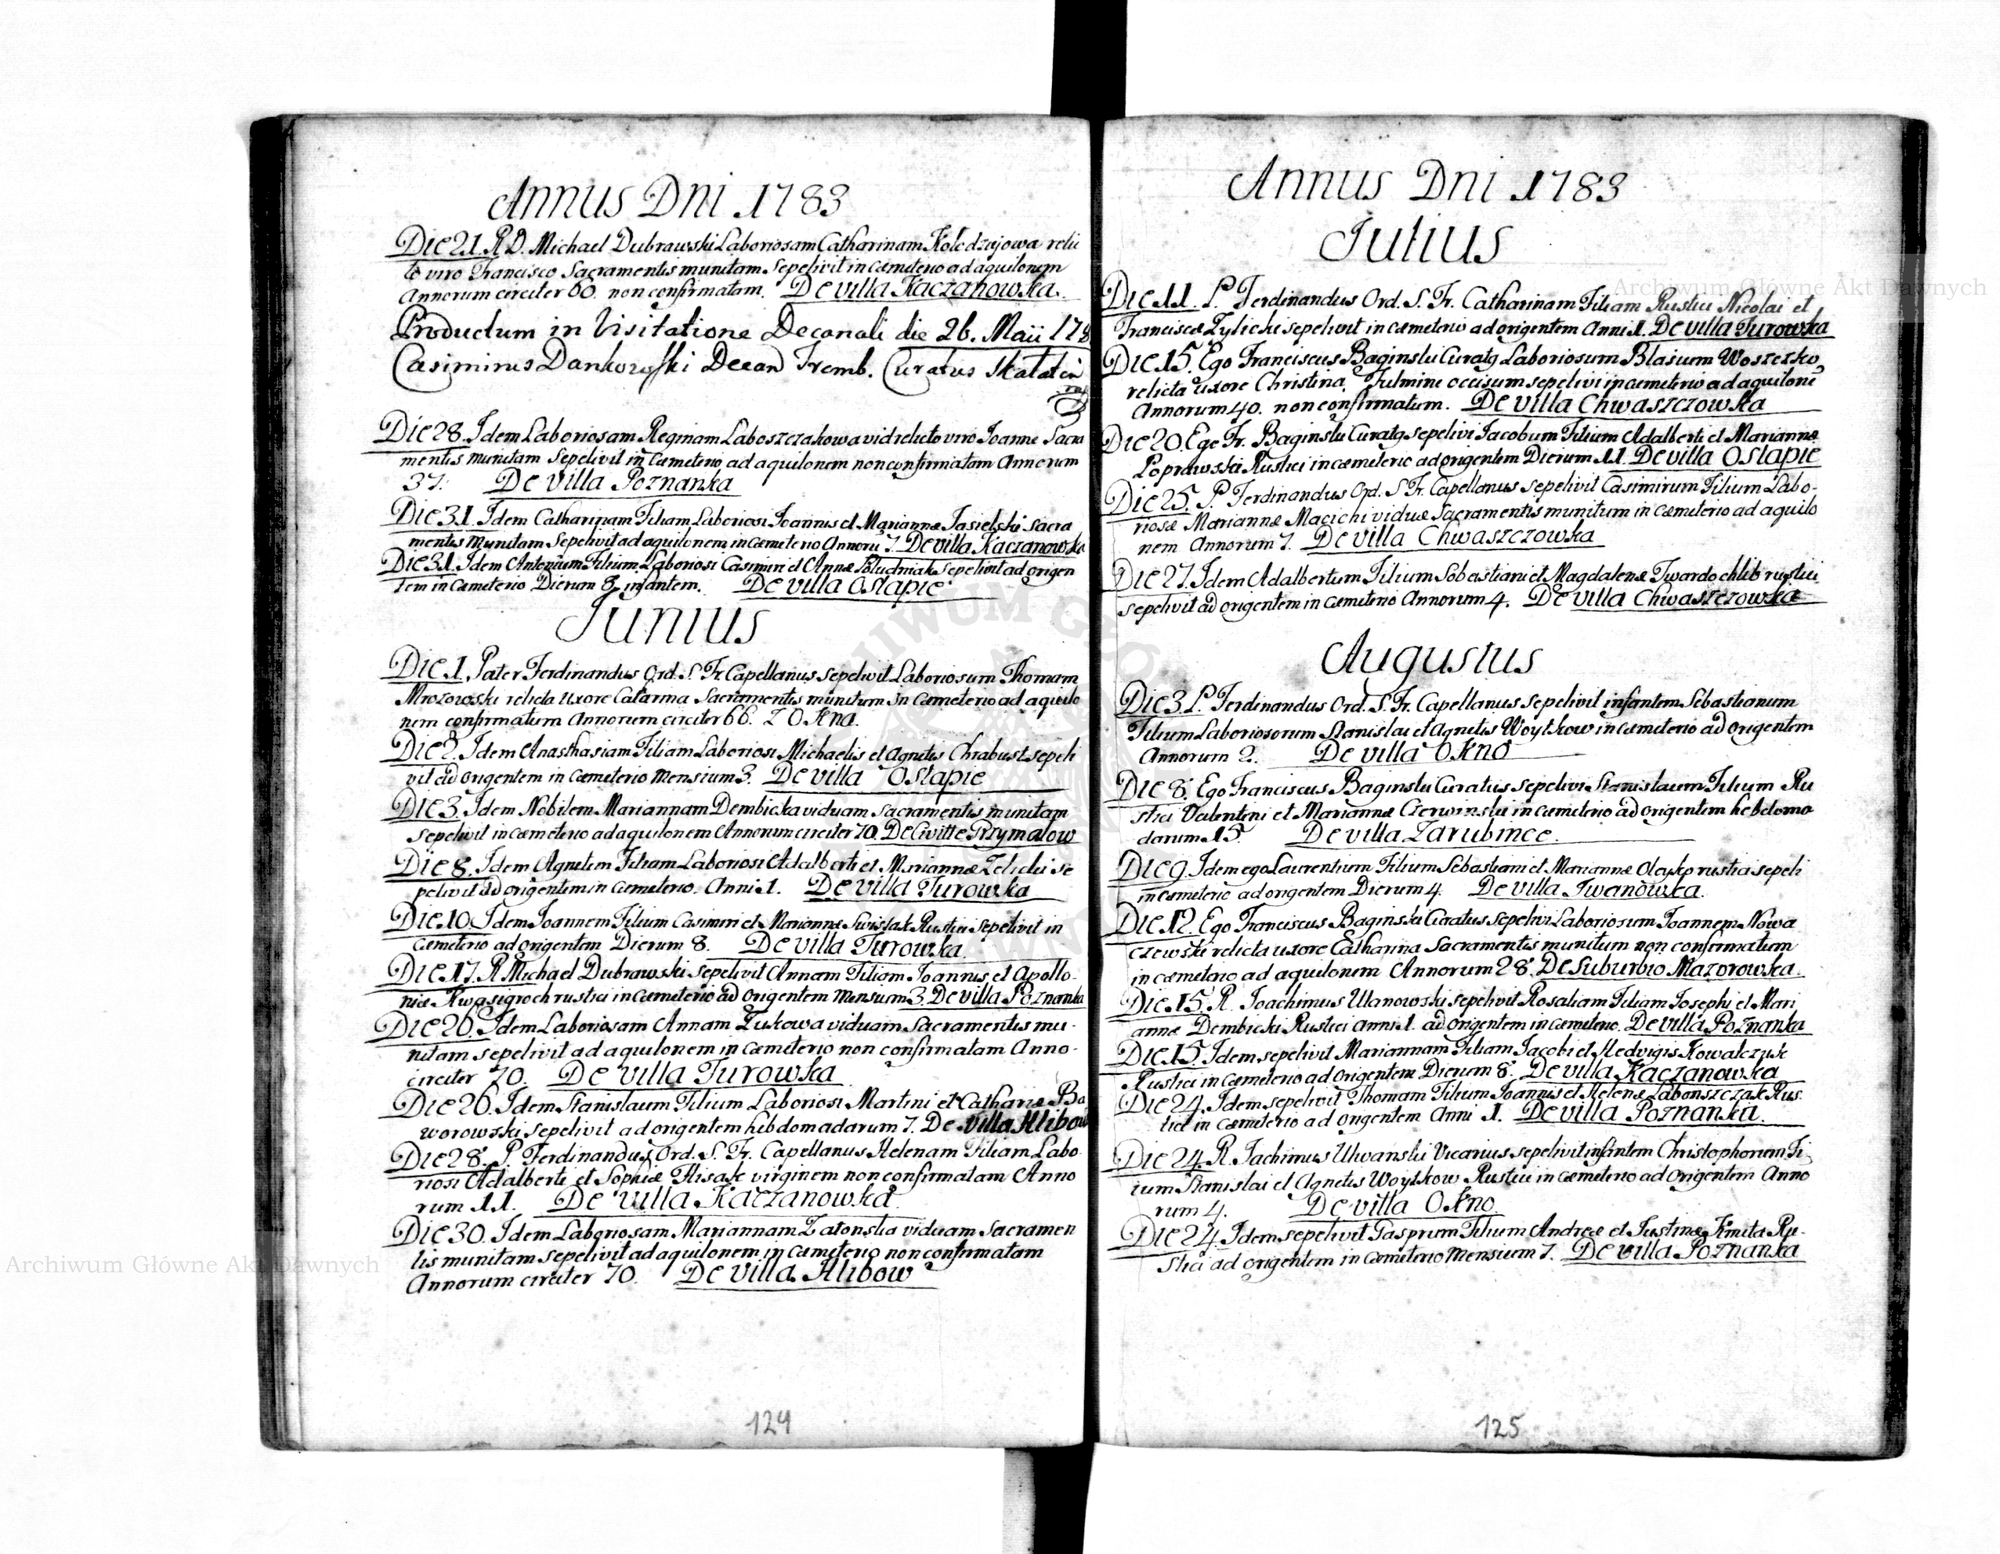 Annus Dni 1783
Die 21. R D. Michael Dubrawski Laboriosam Catharinam Kolodzajowa relic
to viro Francisco Sacramentis munitam Sepelivit in cæmeterio ad aquilonem
Annorum circiter 60. non confirmatam. De villa Kaczanowska.
Productum in Visitatione Decanali die 26. Maii 178
Casimirus Dankowski Decan Tremb. Curatus
Die 28. Idem Laboriosam Reginam vid relicto viro Joanne Sacra
mentis munitam Sepelivit in Cæmeterio ad aquilonem non confirmatam Annorum
37. De villa Poznanka
Die 31. Idem Catharinam Filiam Laboriosi Joannis et Mariannæ Jasielski Sacra
mentis Munitam Sepelivit ad aquilonem in Cæmeterio Annoru 7. De villa Kaczanowska
Die 31. Idem Antonium Filium Laboriosi Casimiri et Annæ Poludniak Sepelivit ad origen
tem in Cæmeterio Dierum 8. infantem. De villa Ostapie
Junius
Die 1. Pater Ferdinandus Ord. S. Fr. Capellanus sepelivit Laboriosum Thomam
Mrozowski relicta Uxore Catarina Sacramentis munitum in Cæmeterio ad aquilo
nem confirmatum Annorum circiter 66. Z Okna.
Die 2. Idem Anasthasiam Filiam Laboriosi Michaelis et Agnetis Chrabust sepeli
vit ad origentem in Cæmeterio Mensium 3. De villa Ostapie
Die 3. Idem Nobilem Mariannam Dembicka viduam Sacramentis munitam
Sepelivit in cæmeterio ad aquilonem Annorum circiter 70. De Civitte Grzymalow
Die 8. Idem Agnetem Filiam Laboriosi Adalberti et Mariannæ Zelichi se
pelivit ad origentem in Cæmeterio. Anni 1. De villa Turowka
Die 10. Idem Joannem Filium Casimiri et Mariannæ Rustici Sepelivit in
Cæmeterio ad origentem Dierum 8. De villa Turowka.
Die 17. R. Michael Dubrawski sepelivit Annam Filiam Joannis et Apollo-
niæ Kwasigroch rustici in Cæmeterio ad origentem Mensium 3. De villa Poznanka
Die 26. Idem Laboriosam Annam Zukowa viduam Sacramentis mu-
nitam sepelivit ad aquilonem in Cæmeterio non confirmatam Anno-
circiter 70. De villa Turowka
Die 26. Idem Stanislaum Filium Laboriosi Martini et Ba
worowski sepelivit ad origentem hebdomadarum 7. De villa Hlibow
Die 28. P Ferdinandus Ord. S. Fr. Capellanus Helenam Filiam Labo-
riosi Adalberti et Sophiæ Hisak virginem non confirmatam Anno
rum 11. De villa Kaczanowka.
Die 30. Idem Laboriosam Mariannam viduam Sacramen
tis munitam sepelivit ad aquilonem in Cæmeterio non confirmatam
Annorum circiter 70. De villa Hlibow
124
Annus Dni 1783
Julius
Die 11. P. Ferdinandus Ord. S. Fr. Catharinam Filiam Rustici Nicolai et
Franciscæ Zylichi sepelivit in cæmeterio ad origentem Anni 1. De villa Turowka
Die 15. Ego Franciscus Baginski Curatg Laboriosum Blasium Woszczko
relicta uxore Christina. Fulmine occisum sepelivi in cæmeterio ad aquilone
Annorum 40. non confirmatum. De villa Chwaszczowka
Die 20. Ego Fr. Baginski Curatg sepelivi Jacobum Filium Adalberti et Mariannæ
Poprawski Rustici in cæmeterio ad origentem Dierum 11. De villa Ostapie
Die 25. P. Ferdinandus Ord. S Fr. Capellanus sepelivit Casimirum Filium Labo-
riosæ Mariannæ Macichi viduæ Sacramentis munitum in Cæmeterio ad aquilo
nem Annorum 7. De villa Chwaszczowka
Die 27. Idem Adalbertum Filium Sobastiani et Magdalenæ Twardochlib rustici
sepelivit ad origentem in cæmeterio Annorum 4. De villa Chwaszczowka
Augustus
Die 3. P. Ferdinandus Ord. S. Fr. Capellanus sepelivit infantem Sebastianum
Filium Laboriosorum Stanislai et Agnetis Woytkow in cæmeterio ad origentem
Annorum 2. De villa Okno
Die 8. Ego Franciscus Baginski Curatus sepelivi Stanislaum Filium Ru
stici Valentini et Mariannæ Czerwinski in cæmeterio ad origentem hebdoma
darum 15. De villa Zarubince.
Die 9. Idem ego Laurentium Filium Sebastiani et Mariannæ rustici sepeli
in cæmeterio ad origentem Dierum 4. De villa Iwanowka.
Die 12. Ego Franciscus Baginski Curatus sepelivi Laboriosum Joannem Nowa
czewski relicta uxore Catharina Sacramentis munitum non confirmatum
in cæmeterio ad aquilonem Annorum 28. De Suburbio Mazorowka.
Die 15. R. Joachimus Ulanowski sepelivit Rosaliam Filiam Josephi et Mari
annæ Dembicki Rustici anni 1. ad origentem in cæmeterio. De villa Poznanka
Die 15. Idem sepelivit Mariannam Filiam Jacobi et Hedvigis Kowalczyk
Rustici in Cæmeterio ad origentem Dierum 8. De villa Kaczanowka
Die 24. Idem sepelivit Thomam Filium Joannis et Helenæ Rus.
tici in cæmeterio ad origentem Anni 1. De villa Poznanka.
Die 24. R. Jachimus Vicarius sepelivit infantem Christophorum Fi
lium Stanislai et Agnetis Woytkow Rustici in cæmeterio ad origentem Anno
rum 4. De villa Okno
Die 24. Idem sepelivit Gasprum Filium Andreæ et Justinæ Kmita Ru-
stici ad origentem in cæmeterio Mensium 7. De villa Poznanka
125
Archiwum Główne Akt Dawnych
Archiwum Główne Akt Dawnych